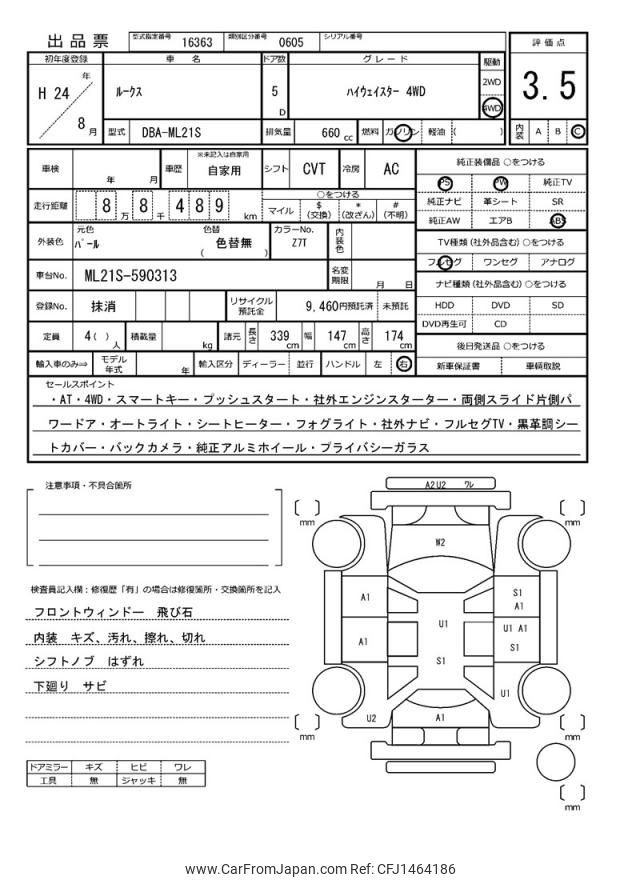 出品票
型式指定番号 16363 類別区分番号 0605 シリアル番号
評価点
3.5
内装 A B C
初年度登録 車名 ドア数 グレード 駆動
H 24 年 8 月
ルークス
5 D
ハイウェイスター 4WD
2WD
4WD
型式 DBA-ML21S 排気量 660 cc 燃料 ガソリン 軽油 ( )
車検 年 月 車歴 ※未記入は自家用 自家用 シフト CVT 冷房 AC
走行距離 8 万 8 千 4 8 9 km
○をつける
マイル $ (交換) * (改ざん) # (不明)
外装色 元色 パール 色替 色替無 ( ) カラーNo. Z7T 内装色
車台No. ML21S-590313 名変期限 月 日
登録No. 抹消 リサイクル預託金 9,460円預託済 未預託
定員 4( ) 人 積載量 kg 諸元 長さ 339 cm 幅 147 cm 高さ 174 cm
輸入車のみ⇒ モデル年式 年 輸入区分 ディーラー 並行 ハンドル 左 右
純正装備品 ○をつける
PS PW 純正TV
純正ナビ 革シート SR
純正AW エアB ABS
TV種類 (社外品含む) ○をつける
フルセグ ワンセグ アナログ
ナビ種類 (社外品含む) ○をつける
HDD DVD SD
DVD再生可 CD
後日発送品 ○をつける
新車保証書 車輌取説
セールスポイント
・AT・4WD・スマートキー・プッシュスタート・社外エンジンスターター・両側スライド片側パ
ワードア・オートライト・シートヒーター・フォグライト・社外ナビ・フルセグTV・黒革調シー
トカバー・バックカメラ・純正アルミホイール・プライバシーガラス
注意事項・不具合箇所
検査員記入欄：修復歴「有」の場合は修復箇所・交換箇所を記入
フロントウィンドー 飛び石
内装 キズ、汚れ、擦れ、切れ
シフトノブ はずれ
下廻り サビ
ドアミラー キズ ヒビ ワレ
工具 無 ジャッキ 無
A2U2 ワレ
mm
mm
W2
A1
S1
A1
U1
U1 A1
A1
S1
S1
U1
U2
A1
mm
mm
mm
www.CarFromJapan.com Ref: CFJ1464186